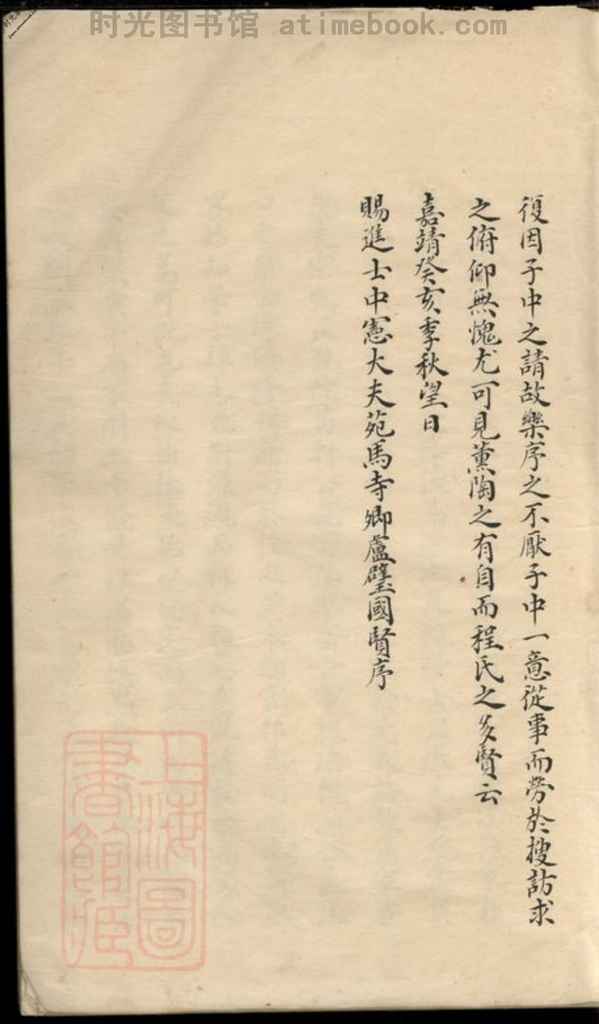 时光图书馆 atimebook.com
復因子中之請故樂序之不厭子中一意從事而勞於搜訪求
之俯仰無愧尤可見薰陶之有自而程氏之多賢云
嘉靖癸亥季秋望日
賜進士中憲大夫苑馬寺卿盧璧國賢序
上海圖
書館藏